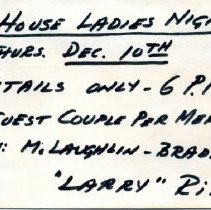 HOUSE LADIES NIG
THURS. DEC. 10TH
TAILS ONLY - 6 P.
GUEST COUPLE PER ME
: McLAUGHLIN - BRAD
"LARRY" RI